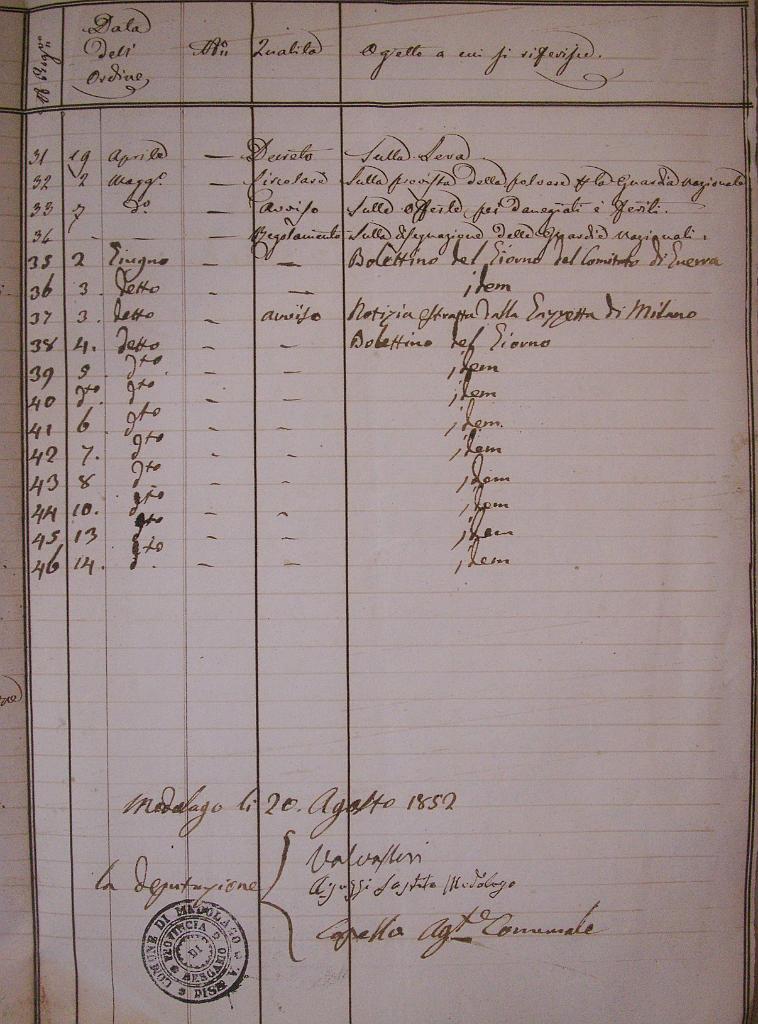 N° Progr°
Data dell' Ordine
N°
Qualità
Ogetto a cui si riferisce.
31 19 Aprile — Decreto Sulla Leva
32 2 Magg.° — Circolare Sulla provista della polvere la Guardia Nazionale
33 7 d.° — Avviso Sulle Offerte pei danegiati e feriti.
34 — — Regolamento Sulla Guardia Nazionali.
35 2 Giugno — — Bolettino del Giorno del Comitato di Guerra
36 3. detto — — idem
37 3. detto — avviso Notizia estratta dalla Gazzetta di Milano
38 4. detto — — Bolettino del Giorno
39 5 dto — — idem
40 dto dto — — idem
41 6 dto — — idem.
42 7. dto — — idem
43 8 dto — — idem
44 10. dto — — idem
45 13 dto — — idem
46 14. dto — — idem
Medolago li 20. Agosto 1852
la deputazione
Medolago
Agte Comunale
COMUNE DI MEDOLAGO
PROVINCIA DI BERGAMO